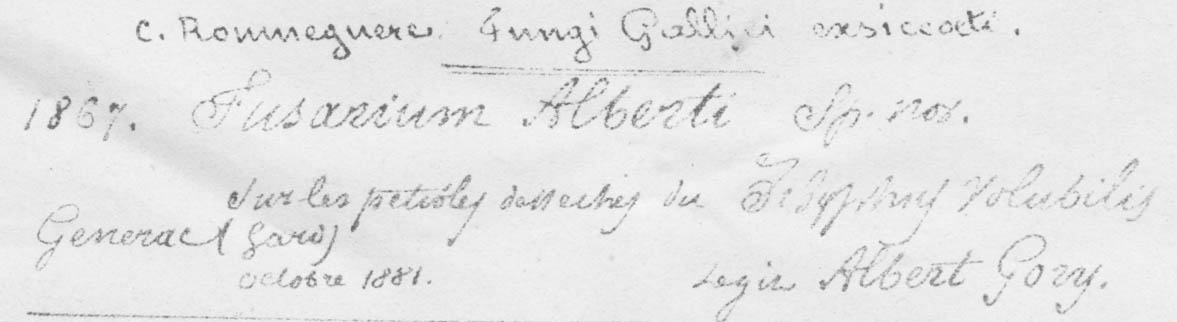 C. Roumeguere. Fungi Gallici exsiccati.
1867. Fusarium Alberti Sp. nov.
Sur les petioles desseches du volubilis
Generac (Gard)
octobre 1881. Legit Albert Gory.